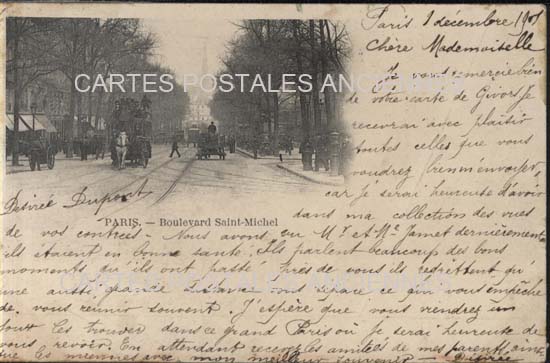 Paris 1 décembre 1901
Chère Mademoiselle
CARTES POSTALES
Je vous remercie bien
de votre carte de Givors Je
recevrai avec plaisir
toutes celles que vous
voudrez bien m'envoyer,
car je serai heureuse d'avoir
dans ma collection des vues
Désirée Dupont
PARIS. — Boulevard Saint-Michel
de vos contrées - Nous avons vu Mr et Me Jamet dernièrement
ils étaient en bonne santé. Ils parlent beaucoup des bons
moments qu'ils ont passé près de vous ils regrettent qu'
une aussi grande distance vous sépare ce qui vous empêche
de vous réunir souvent J'espère que vous viendrez un
jour les trouver dans ce grand Paris où je serai heureuse de
vous revoir. En attendant recevez les amitiés de mes parents ainsi
que les miennes avec mon meilleur souvenir Désirée